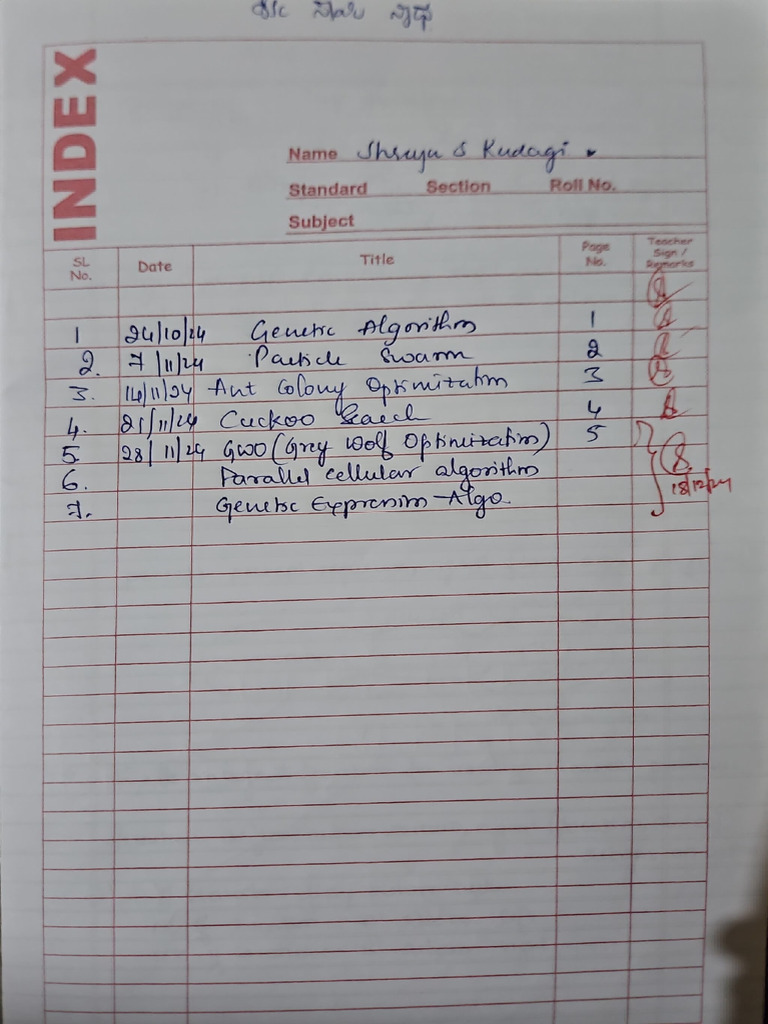 INDEX
Name Shreya S Kudagi
Standard Section Roll No.
Subject
SL No. Date Title Page No. Teacher Sign / Remarks
1 24/10/24 Genetic Algorithm 1
2. 7/11/24 Particle Swarm 2
3. 14/11/24 Ant Colony Optimization 3
4. 21/11/24 Cuckoo Search 4
5 28/11/24 GWO (Grey Wolf Optimization) 5
6. Parallel cellular algorithm
7. Genetic Expression Algo.
18/12/24